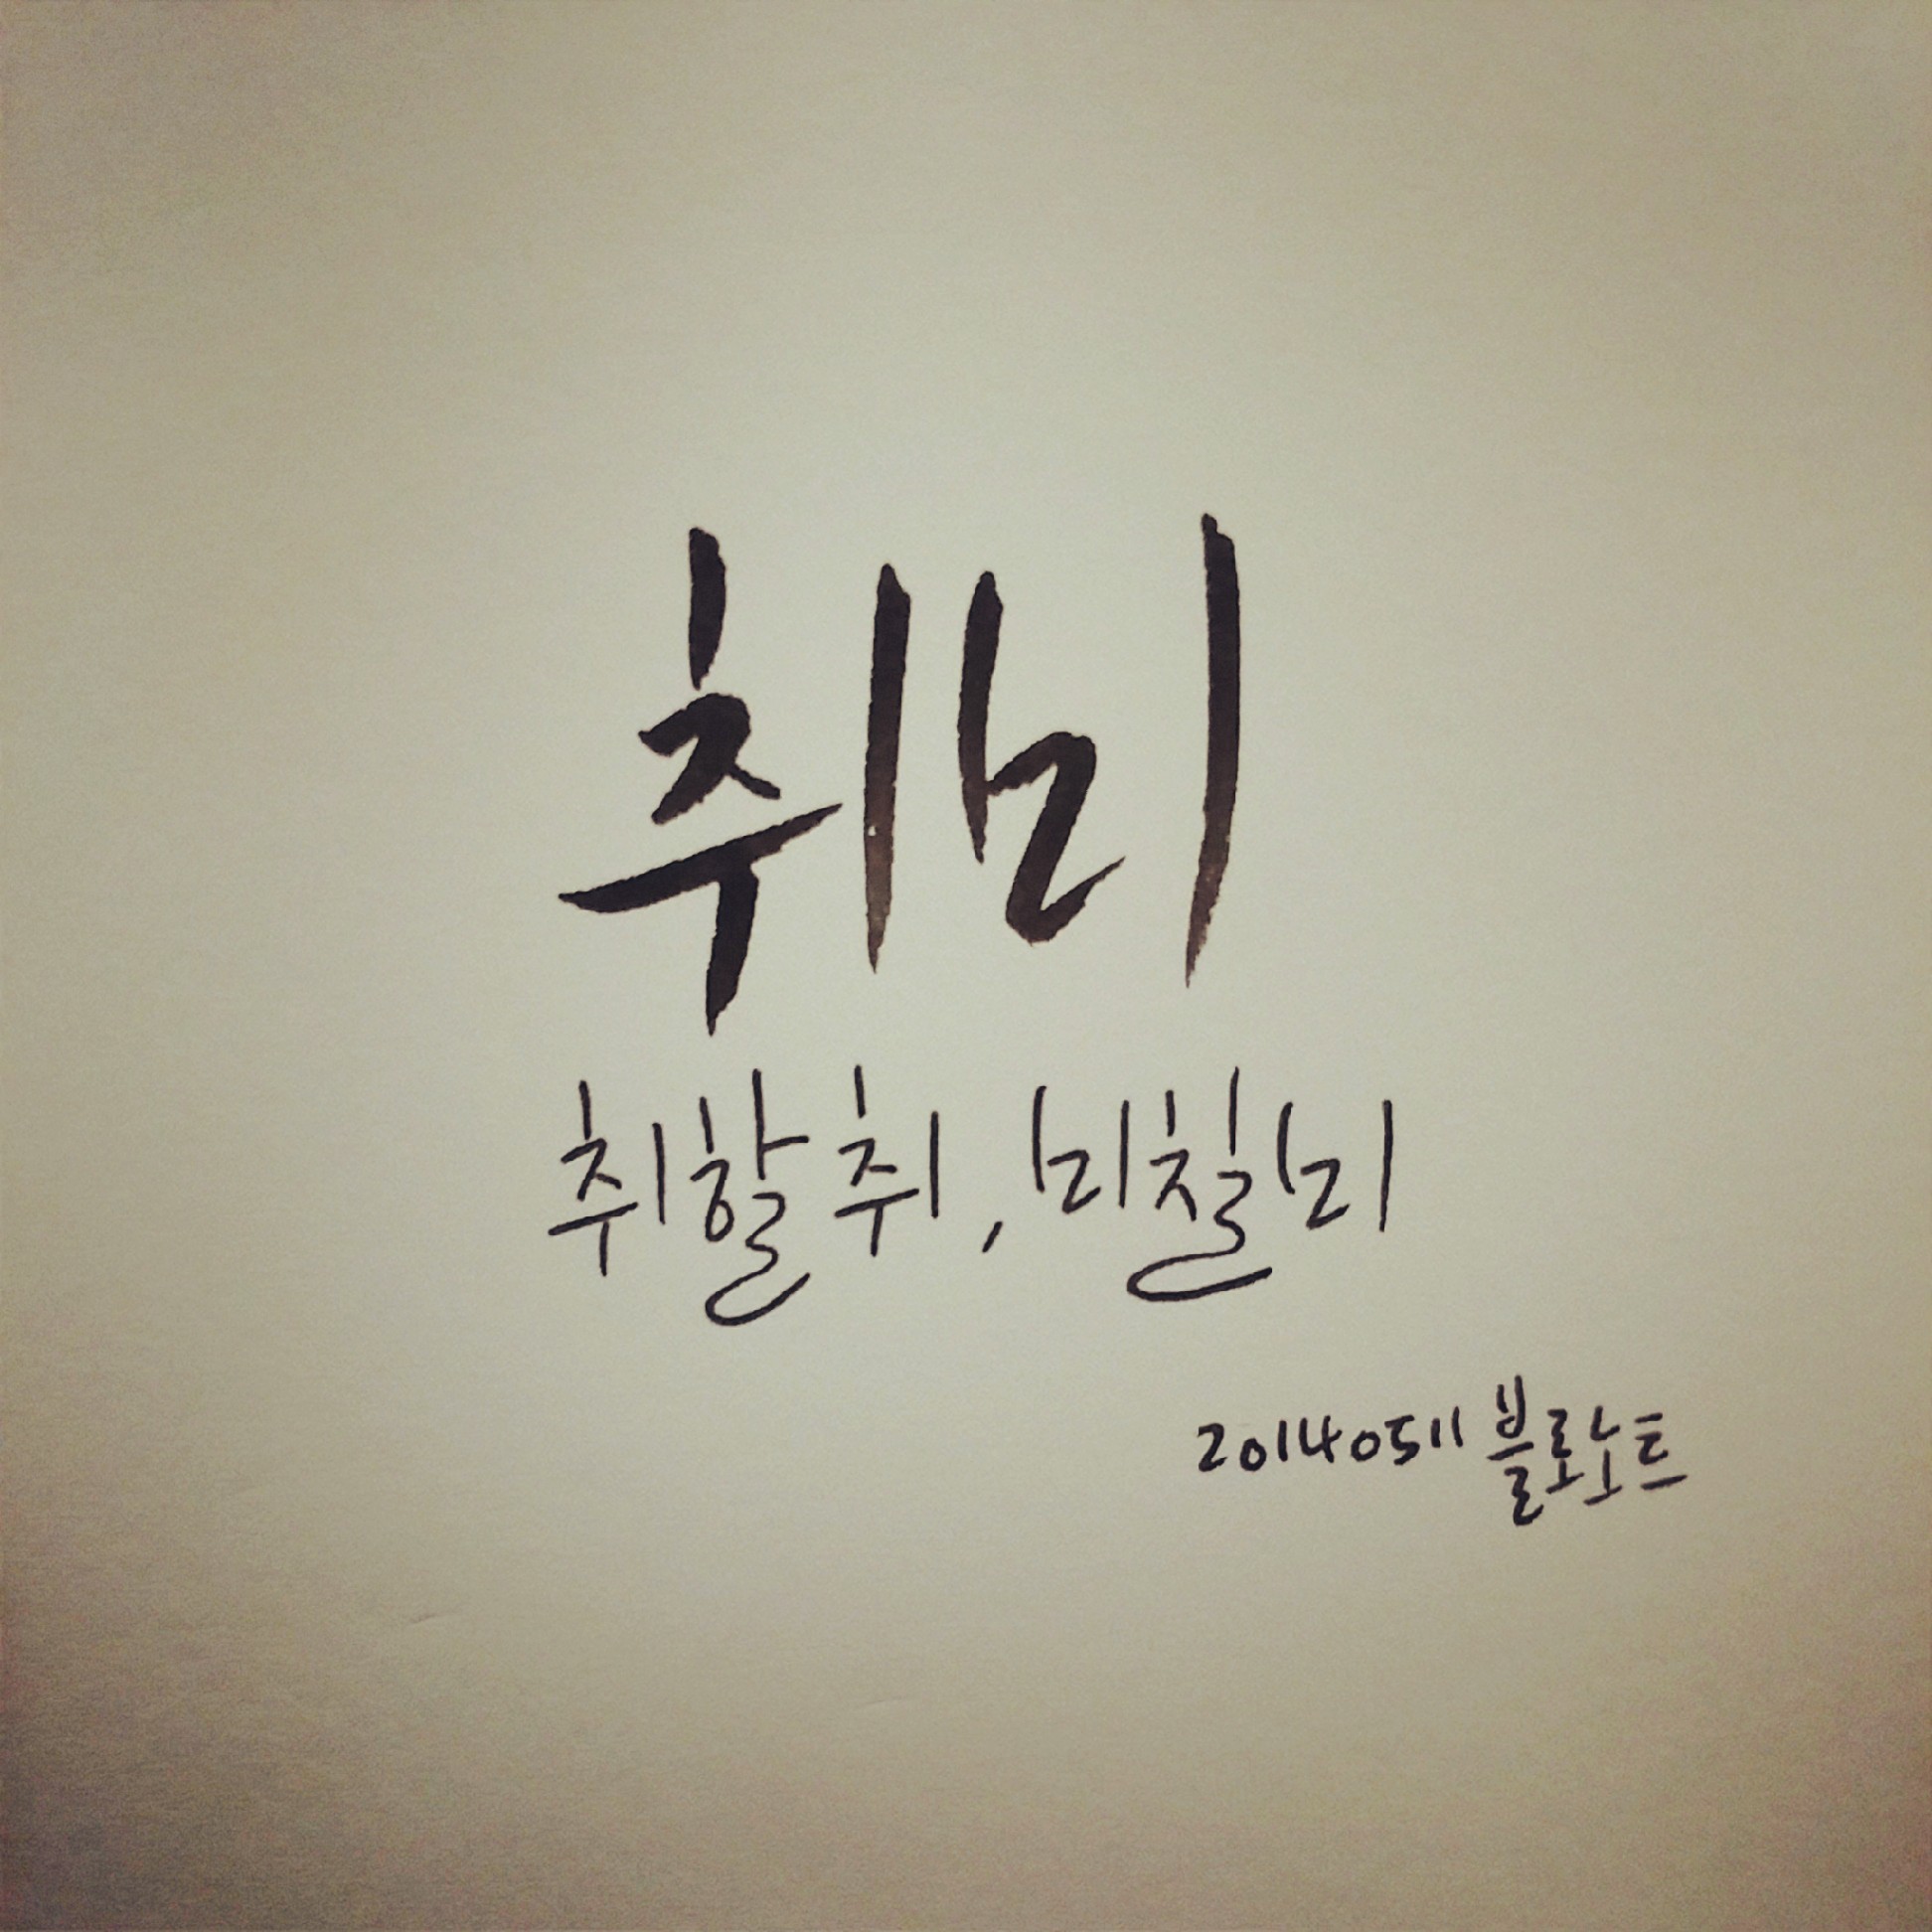 취비
취할 취, 비칠 비
20140511 블로노트